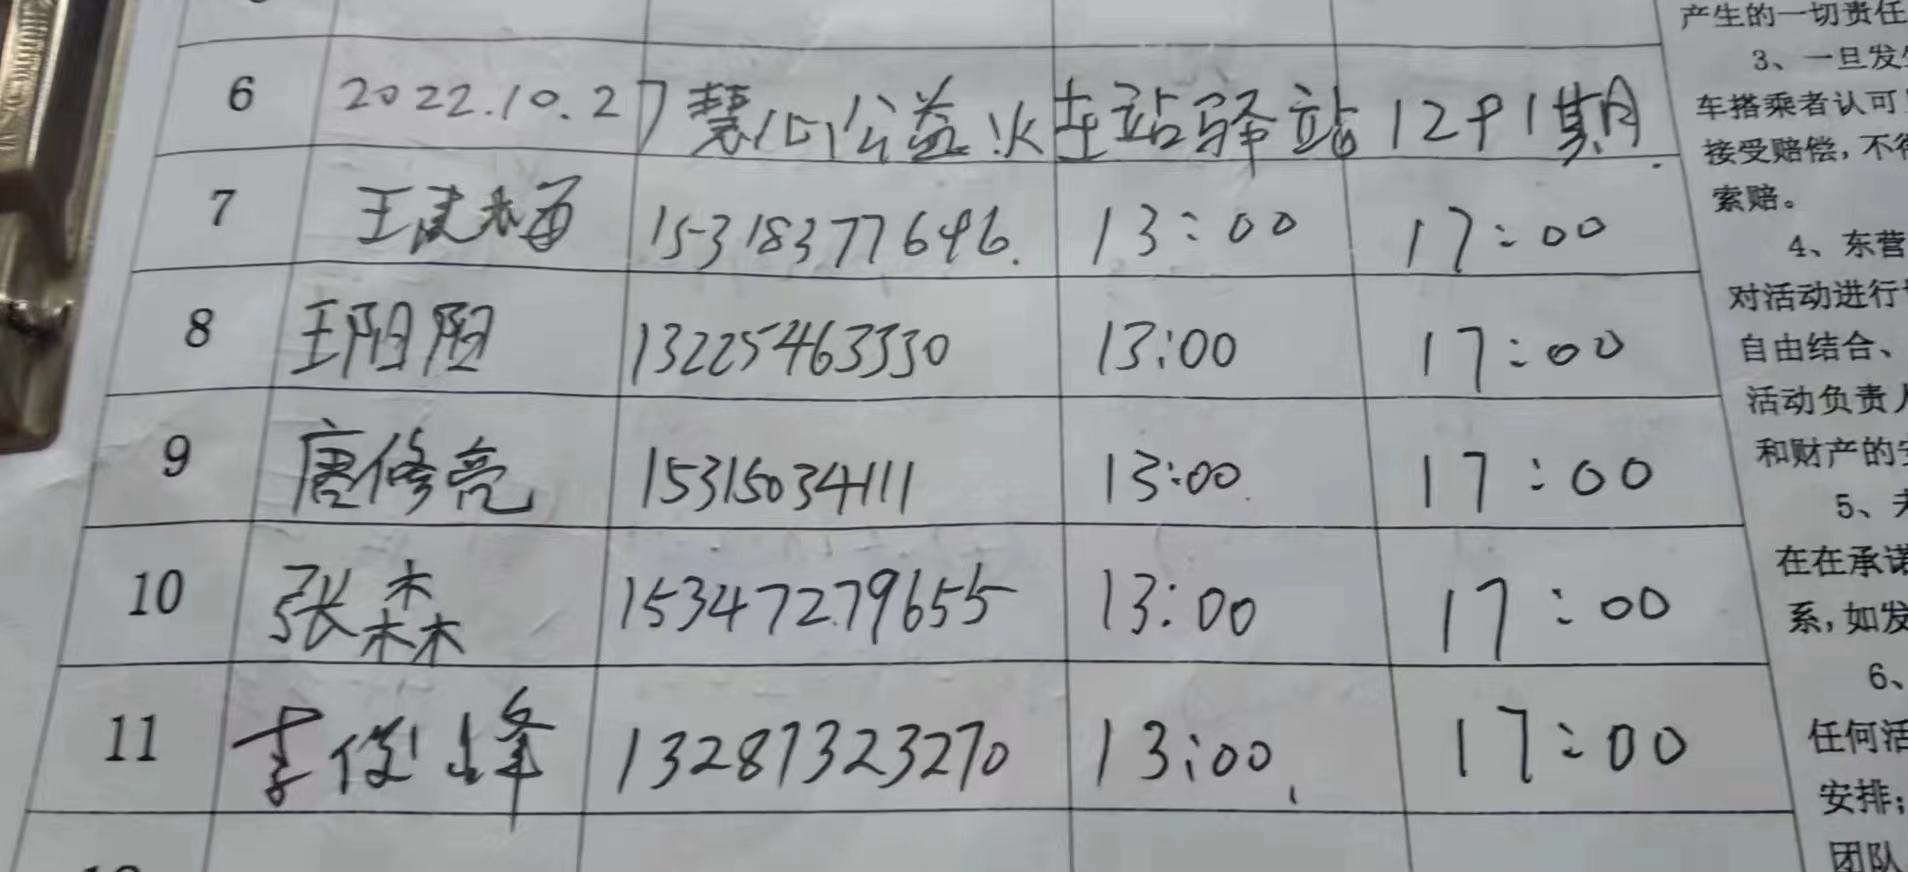 产生的一切责任
3、一旦发生
6 2022.10.27 慧仁公益火车站驿站1291期
车搭乘者认可
接受赔偿，不得
索赔。
7 王 15318377696. 13:00 17:00
4、东营
对活动进行
8 王阳阳 13225463330 13:00 17:00
自由结合、
活动负责人
9 唐修亮 15315034111 13:00 17:00
和财产的安
5、未
在在承诺
10 张森 15347279655 13:00 17:00
系，如发
6、
11 李俊峰 13287323270 13:00 17:00
任何活
安排；
团队